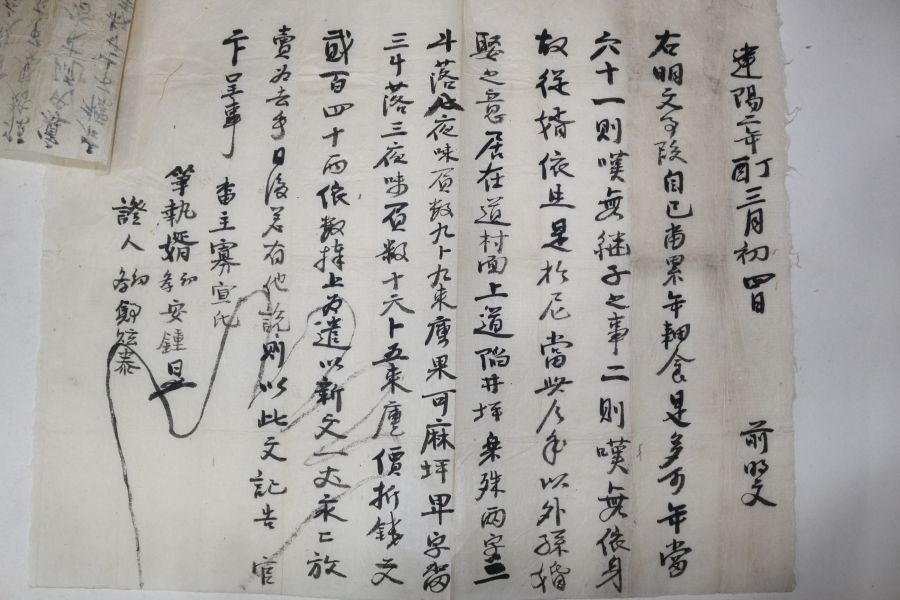 建陽二年丁酉三月初四日 前明文
右明文事段自己畓累年耕食是多可年當
六十一則嘆無継子之事二則嘆無依身
故從婿依生是於尼當此年以外孫婚
娶之意居在道村面上道陷井坪殊兩字二
斗落七夜味負数九卜九束庫果可麻坪畢字畓
三斗落三夜味負数十六卜五束庫價折錢文
貳百四十兩依数捧上为遣以新文一丈永〻放
賣为去乎日後若有他說則以此文記告官
卞呈事 畓主寡宣氏
筆執婿幼學安鍾旦
證人幼學鄭泰